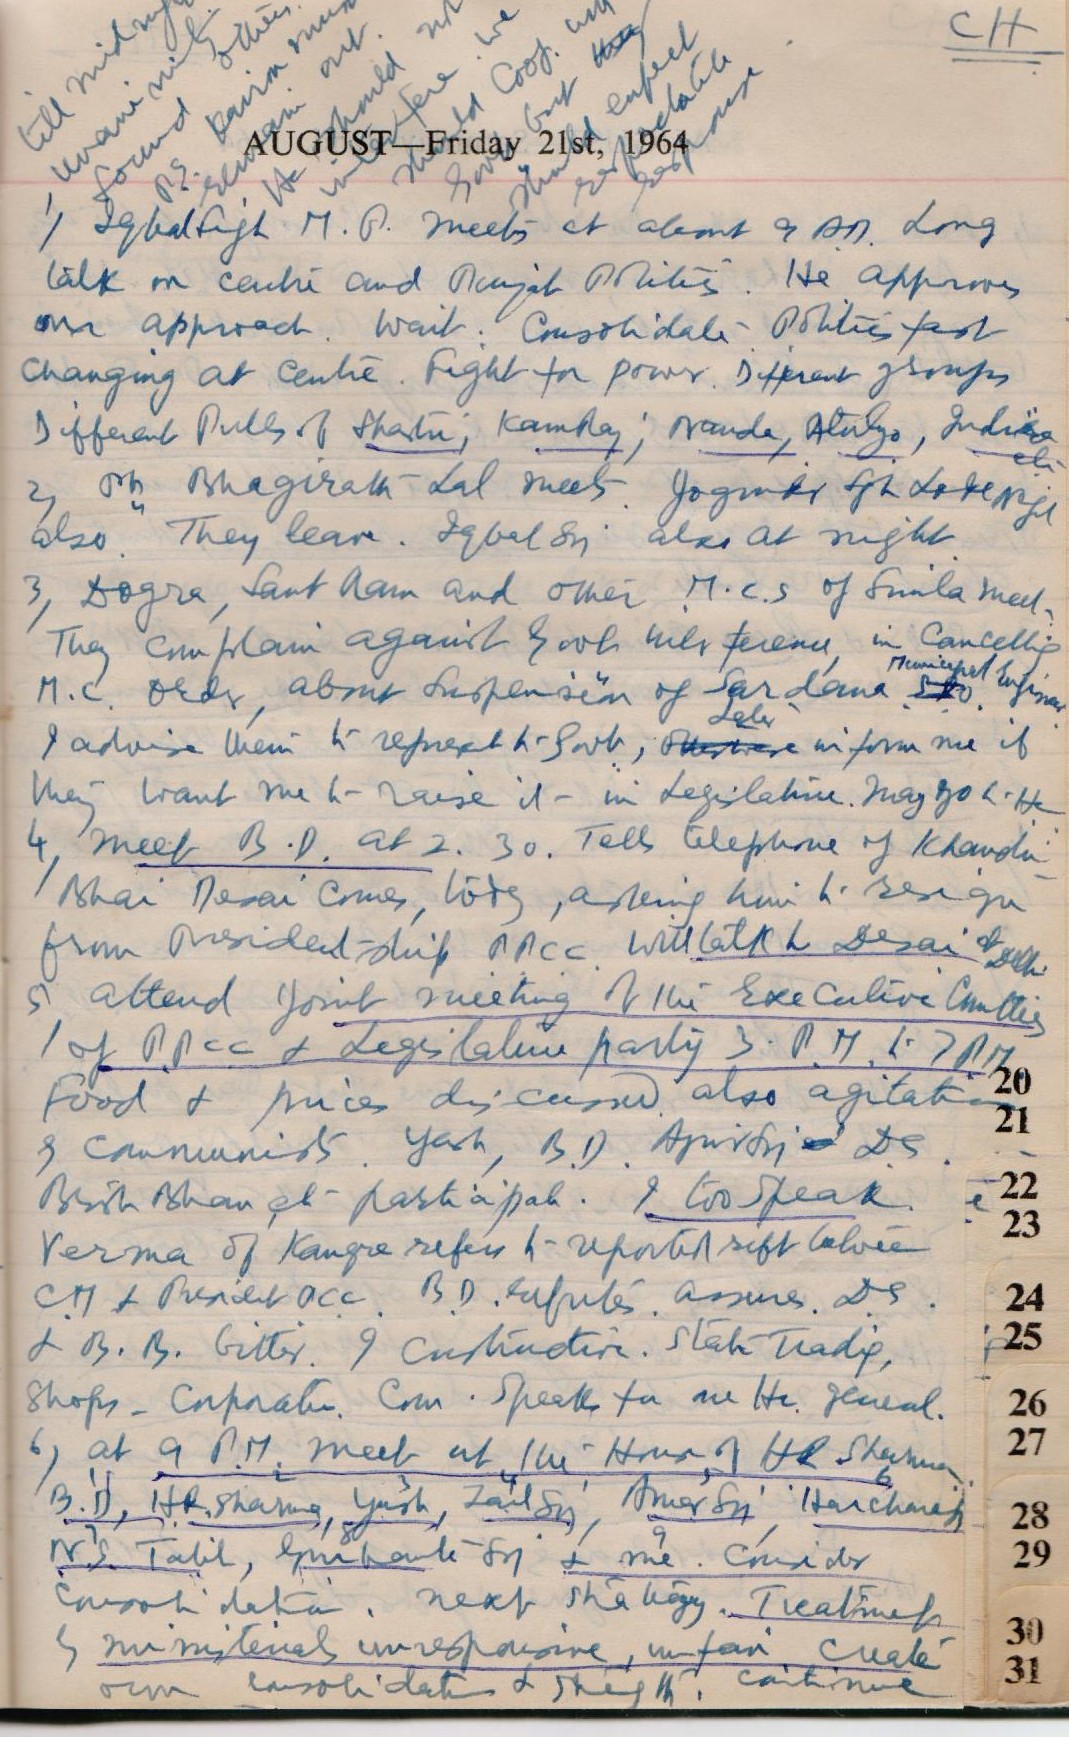 CH
AUGUST—Friday 21st, 1964
1/ Iqbal Singh M.P. meets at about 9 A.M. Long
talk on centre and Punjab Politics. He approves
our approach. Wait. Consolidate. Politics fast
changing at Centre. Fight for power. Different groups
Different Pulls of Shastri, Kamraj, Nanda, Atulya, Indira
etc
2, Bhagirath Lal meets. Joginder Sgh
also. They leave. Iqbal Sgh also at night.
3, Dogra, Sant Ram and other M.C.s of Simla meet.
They complain against Govt interference, in Cancelling
M.C. order, about Suspension of Sardana Municipal Engineer
I advise them to represent to Govt, Later inform me if
they want me to raise it in Legislature. May go to Hc
4, meet B.D. at 2.30. Tells telephone of Khandu
Bhai Desai comes, today, asking him to resign
from President-ship PPCC. Will talk to Desai at Delhi
5 attend Joint meeting of the Executive Cmttes
/ of PPCC & Legislature party 3 P.M. to 7 PM
Food & prices discussed also agitation
of communists. Yash, B.D. DS.
Brish Bhan etc participate. I too speak.
Verma of Kangra refers to reported rift between
CM & President PCC. B.D. refutes. assures. DS.
& B.B. bitter. I Constructive. State Trading,
Shops - Corporation. Com. Speaks for one Hr. general.
6, at 9 P.M. meet at the House of HR Sharma.
B.D, HR. Sharma, Yash, Zail Sgj, Amar Sgj, Harcharan
N.S. Talib, Gurbante Sgj & me. Consider
Consolidation. next strategy. Treatment
of ministerial unresponsive, unfair. Create
own consolidation & strength. continue
till midnight
others.
found
P.S. Bairon must
remain out.
He should not
interfere. We
should Coop. with
Govt but
should expect
reciprocal
response
20
21
22
23
24
25
26
27
28
29
30
31